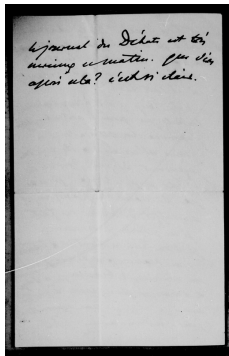 le journal des Débats est très
ce matin. que dire
après cela? c'est si clair.